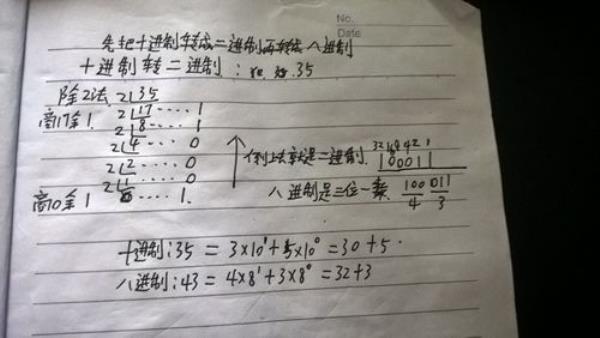 No.
Date
先把十进制转成二进制再转成八进制
十进制转二进制: 35
除2法 2 35
商17余1 2 17 .... 1
2 8 .... 1
2 4 .... 0
2 2 .... 0
2 1 .... 0
商0余1 0 .... 1.
倒过来就是二进制.
32 16 8 4 2 1
100011
八进制是三位一
100 011
4 3
十进制:35 = 3×10¹+5×10⁰ = 30+5.
八进制:43 = 4×8¹+3×8⁰ = 32+3